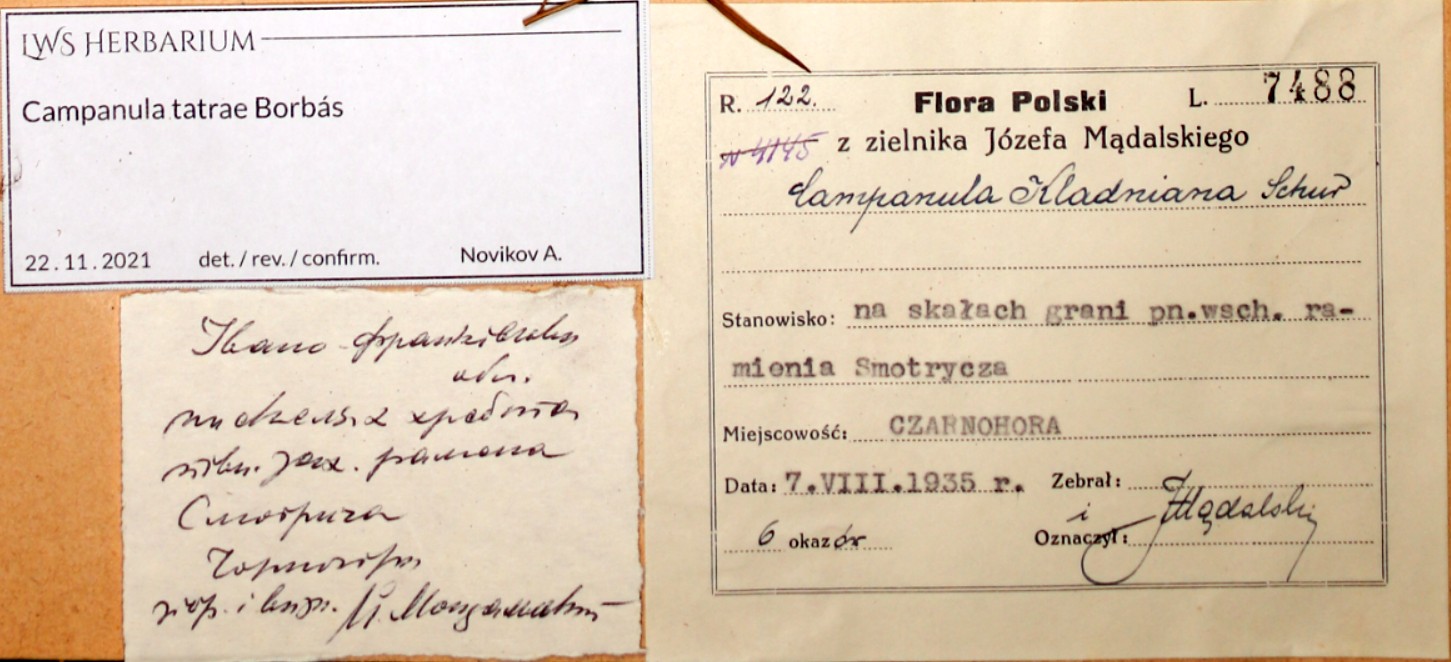 LWS HERBARIUM
Campanula tatrae Borbás
22.11.2021 det. / rev. / confirm. Novikov A.
Івано-Франківська
обл.
на скелях хребта
півн. зах. рамена
Смотрича
Чорногора
зібр. і визн.
R. 122. Flora Polski L. 7488
N 4145 z zielnika Józefa Mądalskiego
Campanula Kladniana Schur
Stanowisko: na skałach grani pn.wsch. ra-
mienia Smotrycza
Miejscowość: CZARNOHORA
Data: 7.VIII.1935 r. Zebrał:
i JMądalski
6 okazów Oznaczył: